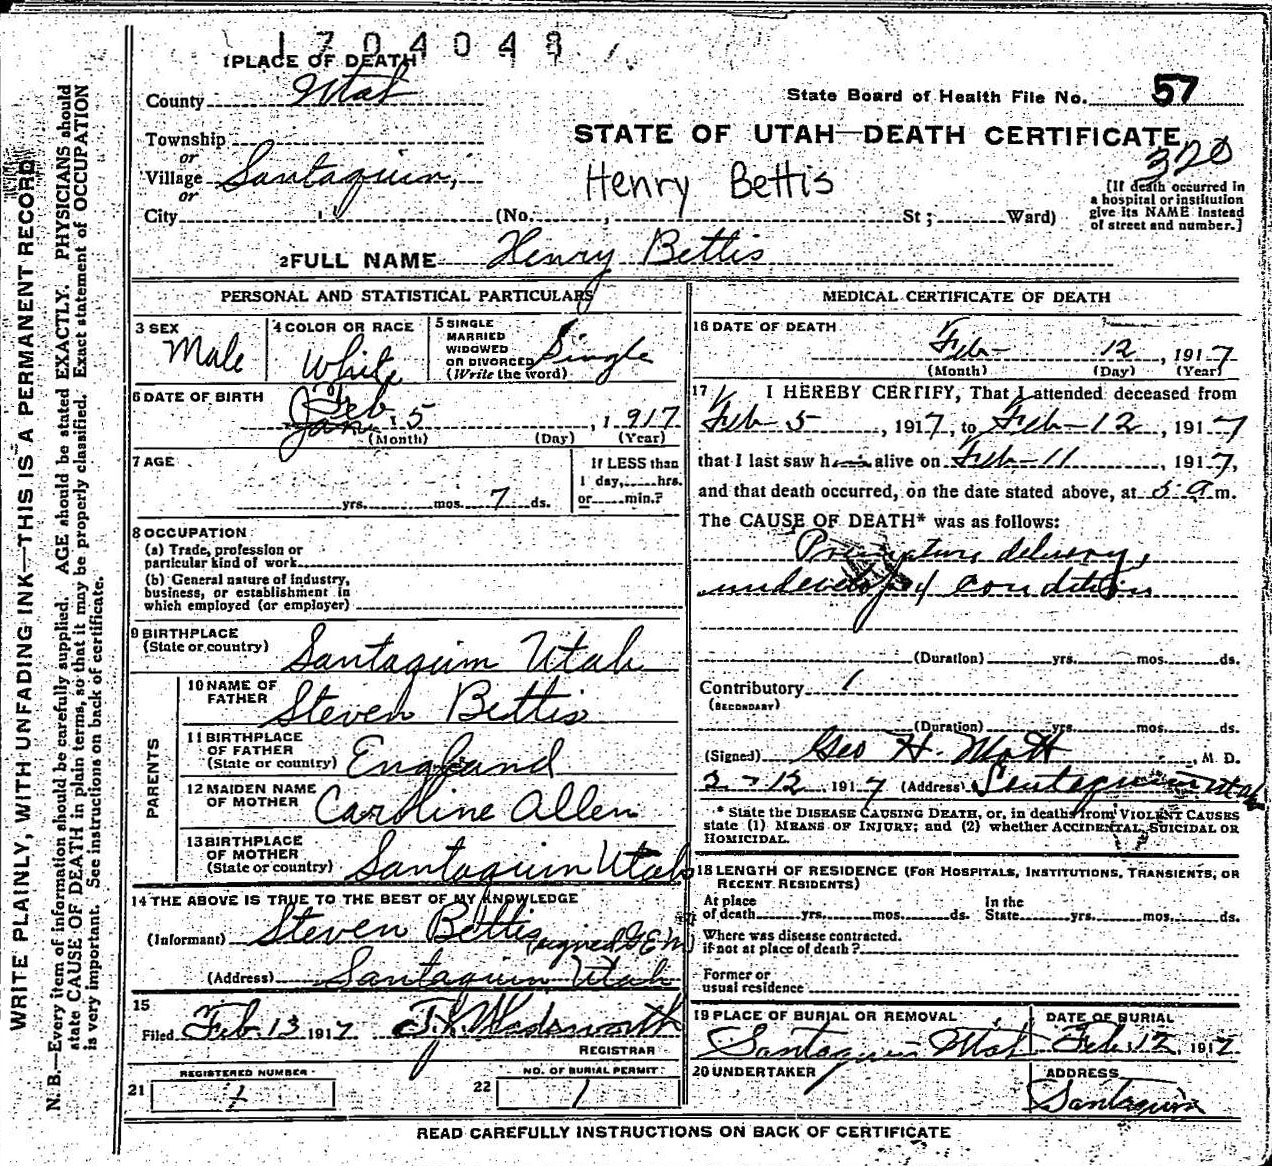 1704048
1 PLACE OF DEATH
County Utah
State Board of Health File No. 57
Township
or
Village Santaquin,
or
City (No. , St; Ward)
STATE OF UTAH—DEATH CERTIFICATE
320
Henry Bettis
[If death occurred in
a hospital or institution
give its NAME instead
of street and number.]
2 FULL NAME Henry Bettis
PERSONAL AND STATISTICAL PARTICULARS
3 SEX
Male
4 COLOR OR RACE
White
5 SINGLE
MARRIED
WIDOWED
OR DIVORCED
(Write the word)
Single
6 DATE OF BIRTH
Feb. 5, 1917
Jan.
(Month) (Day) (Year)
7 AGE
yrs. mos. 7 ds.
If LESS than
1 day, hrs.
or min.?
8 OCCUPATION
(a) Trade, profession or
particular kind of work
(b) General nature of industry,
business, or establishment in
which employed (or employer)
9 BIRTHPLACE
(State or country) Santaquin Utah
PARENTS
10 NAME OF
FATHER Steven Bettis
11 BIRTHPLACE
OF FATHER
(State or country) England
12 MAIDEN NAME
OF MOTHER Caroline Allen
13 BIRTHPLACE
OF MOTHER
(State or country) Santaquin Utah
14 THE ABOVE IS TRUE TO THE BEST OF MY KNOWLEDGE
(Informant) Steven Bettis (signed G.E.M)
(Address) Santaquin Utah
15
Filed Feb. 13 1917 Wadsworth
REGISTRAR
21 REGISTERED NUMBER
1
22 NO. OF BURIAL PERMIT
1
MEDICAL CERTIFICATE OF DEATH
16 DATE OF DEATH
Feb- 12, 1917
(Month) (Day) (Year)
17 I HEREBY CERTIFY, That I attended deceased from
Feb- 5, 1917, to Feb-12, 1917
that I last saw him alive on Feb-11, 1917,
and that death occurred, on the date stated above, at 5 a m.
The CAUSE OF DEATH* was as follows:
Premature delivery,
undeveloped condition
(Duration) yrs. mos. ds.
Contributory
(SECONDARY)
(Duration) yrs. mos. ds.
(Signed) Geo H. Mott, M. D.
2-12 1917 (Address) Santaquin Utah
* State the DISEASE CAUSING DEATH, or, in deaths from VIOLENT CAUSES
state (1) MEANS OF INJURY; and (2) whether ACCIDENTAL, SUICIDAL OR
HOMICIDAL.
18 LENGTH OF RESIDENCE (FOR HOSPITALS, INSTITUTIONS, TRANSIENTS, OR
RECENT RESIDENTS)
At place
of death yrs. mos. ds.
In the
State yrs. mos. ds.
Where was disease contracted.
if not at place of death?
Former or
usual residence
19 PLACE OF BURIAL OR REMOVAL
Santaquin Utah
DATE OF BURIAL
Feb. 12, 1917
20 UNDERTAKER
ADDRESS
Santaquin
READ CAREFULLY INSTRUCTIONS ON BACK OF CERTIFICATE
WRITE PLAINLY, WITH UNFADING INK—THIS IS A PERMANENT RECORD
N. B.—Every item of information should be carefully supplied. AGE should be stated EXACTLY. PHYSICIANS should
state CAUSE OF DEATH in plain terms, so that it may be properly classified. Exact statement of OCCUPATION
is very important. See instructions on back of certificate.